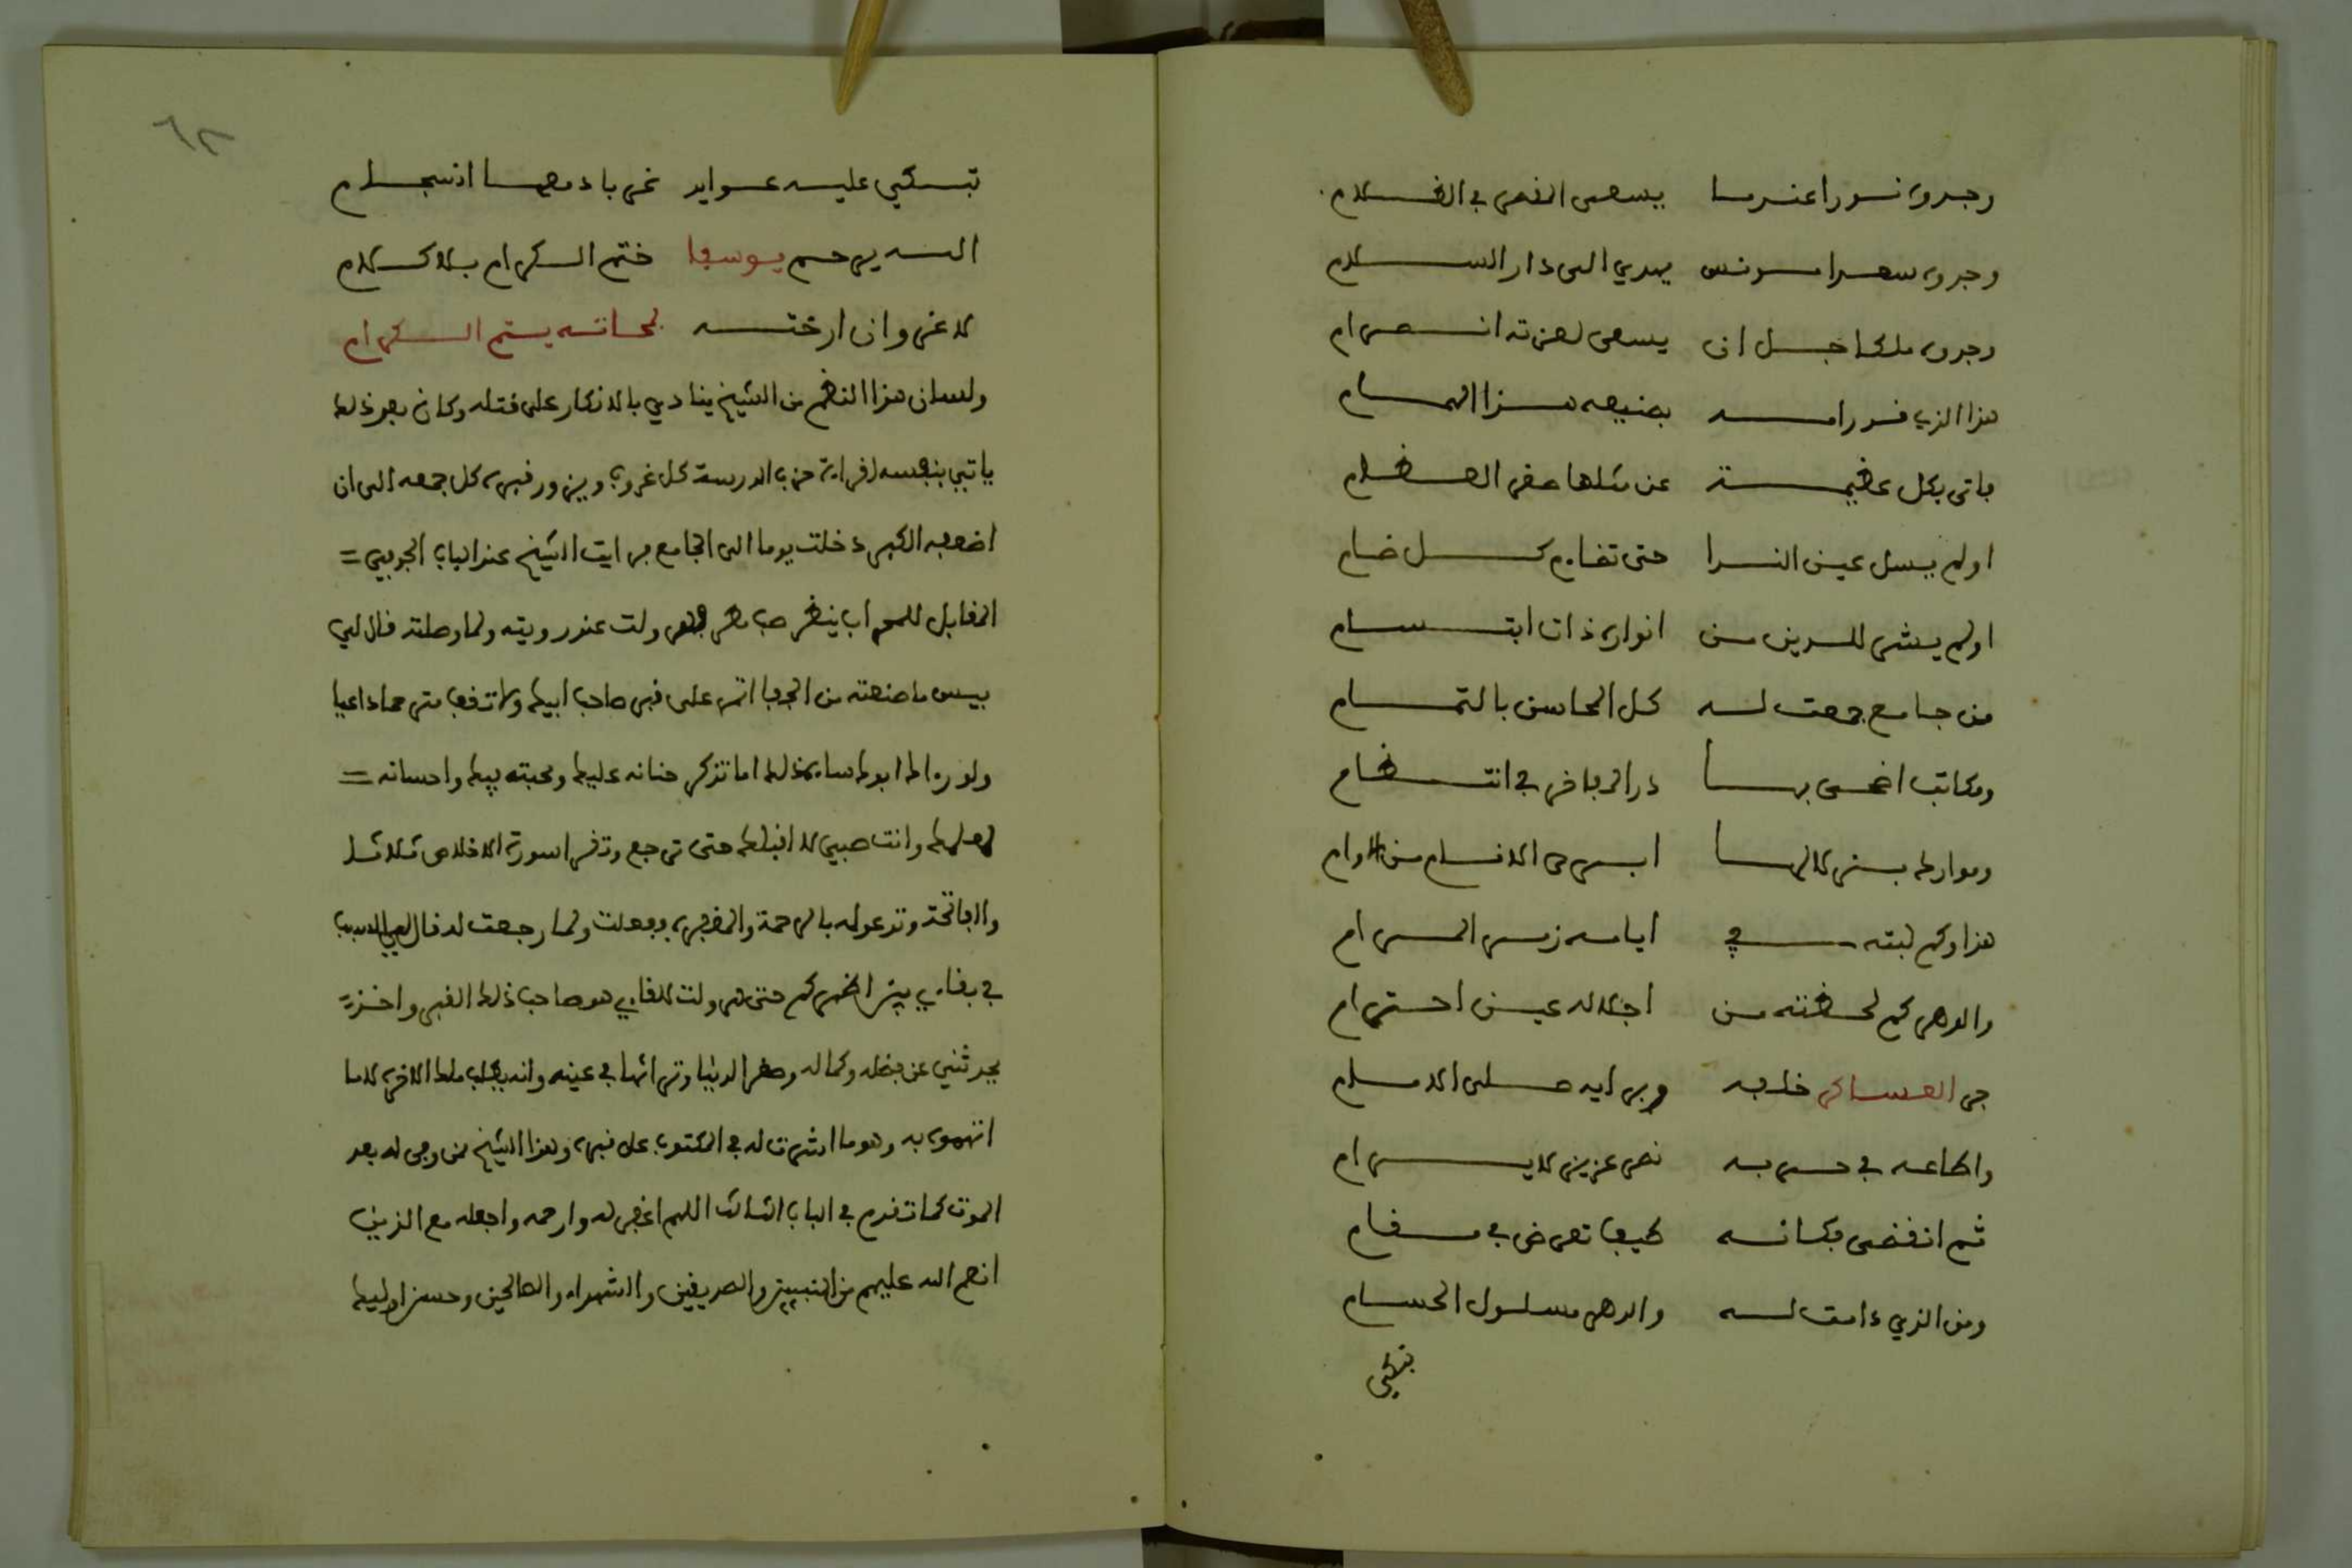 وجدوه نورا عندما يسعى المقصر في الظلام
وجدوه سعدا مونس يهدي الى دار السلام
وجدوه ملكا جل ان يسعى لعزته انصرام
هذا الذي قد رامه بصنيعه هذا الهمام
فاتى بكل عظيمة عن مثلها صغر العظام
اولم يسل عين الندا حتى تفادم كل ضام
اولم يشد للدين من انواره ذات ابتسام
من جامع جمعت له كل المحاسن بالتمام
ومكاتب اضحى بها در المفاخر في انتظام
وموارد بزلالها ابرى الانام من الاوام
هذا وكم لبته في ايامه زمر المرام
والدهر كم لحظته من اجلاله عين احترام
جر العساكر خلفه وبرايه صلى الامام
واطاعه في حربه نصر عزيز لا يرام
ثم انقضى فكانه طيف تعرض في منام
ومن الذي دامت له والدهر مسلول الحسام
تبكي
٦٢
تبكي عليه عوايد غر بادمعها انسجام
الله يرحم يوسفا ختم الكرام بلا كلام
لا غرو ان ارخته لمحاته يتم الكرام
ولسان هذا النظم من الشيخ ينادي بالانكار على قتله وكان بعد ذلك
ياتي بنفسه لقراءة حزب المدرسة كل غروب ويزور قبره كل جمعه الى ان
اضعفه الكبر دخلت يوما الى الجامع فرايت الشيخ عند الباب الجوفي =
المقابل للمحراب ينظر صب مطر فهرولت عند رويته ولما وصلته قال لي
بيس ما صنعته من الجفا اتمر على قبر صاحب ابيك ولا تقف مترحما داعيا
ولو راك ابوك ساءه ذلك اما تذكر حنانه عليك ومحبته فيك واحسانه =
لاهلك وانت صبي لا اقبلك حتى ترجع وتقرا سورة الاخلاص ثلاثا
والفاتحة وتدعو له بالرحمة والمغفرة ففعلت ولما رجعت له قال لي السبب
في بقاءي بين اظهركم حتى هرولت للقاءي هو صاحب ذلك القبر واخذ =
يحدثني عن فضله وكماله وصغر الدنيا وتراثها في عينه وانه يطلب ملك الاخرة لا ما
اتهموه به وهو ما اشرت له في المكتوب على قبره وهذا الشيخ ممن وفى له بعد
الموت كما تقدم في الباب الثالث اللهم اغفر له وارحمه واجعله مع الذين
انعم الله عليهم من النبيين والصديقين والشهداء والصالحين وحسن اوليك